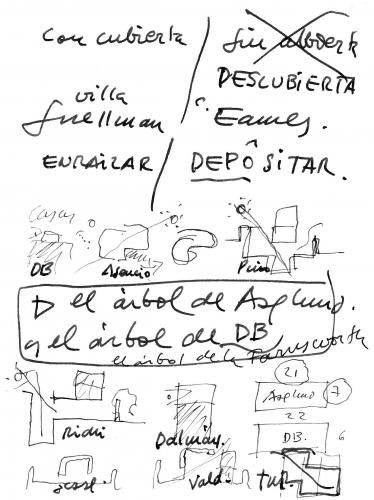 con cubierta / sin
DESCUBIERTA
villa
Snellman / Eames.
ENRAIZAR / DEPÔSITAR.
Casas
DB Asencio Pino
el árbol de Asplund.
y el árbol de DB
el árbol de la Farnsworth
21
Asplund 7
22
DB. 6
Dalmán.
Vald. TUR.